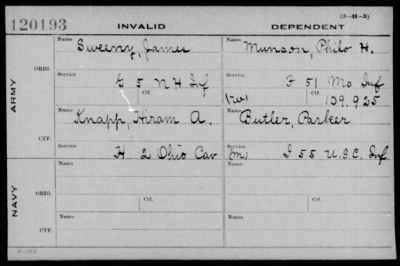 (3-H-5)
120193 INVALID DEPENDENT
ARMY
ORIG.
Name Sweeny, James
Name Munson, Philo H.
Service E 5 N H Inf
Service F 51 Mo Inf
Ctf.
(W) Ctf. 139.925
CTF.
Name Knapp, Hiram A.
Name Butler, Parker
Service H 2 Ohio Cav
Service (M) I 55 U.S.C. Inf
NAVY
ORIG.
Name
Name
Ctf.
Ctf.
CTF.
Name
Name